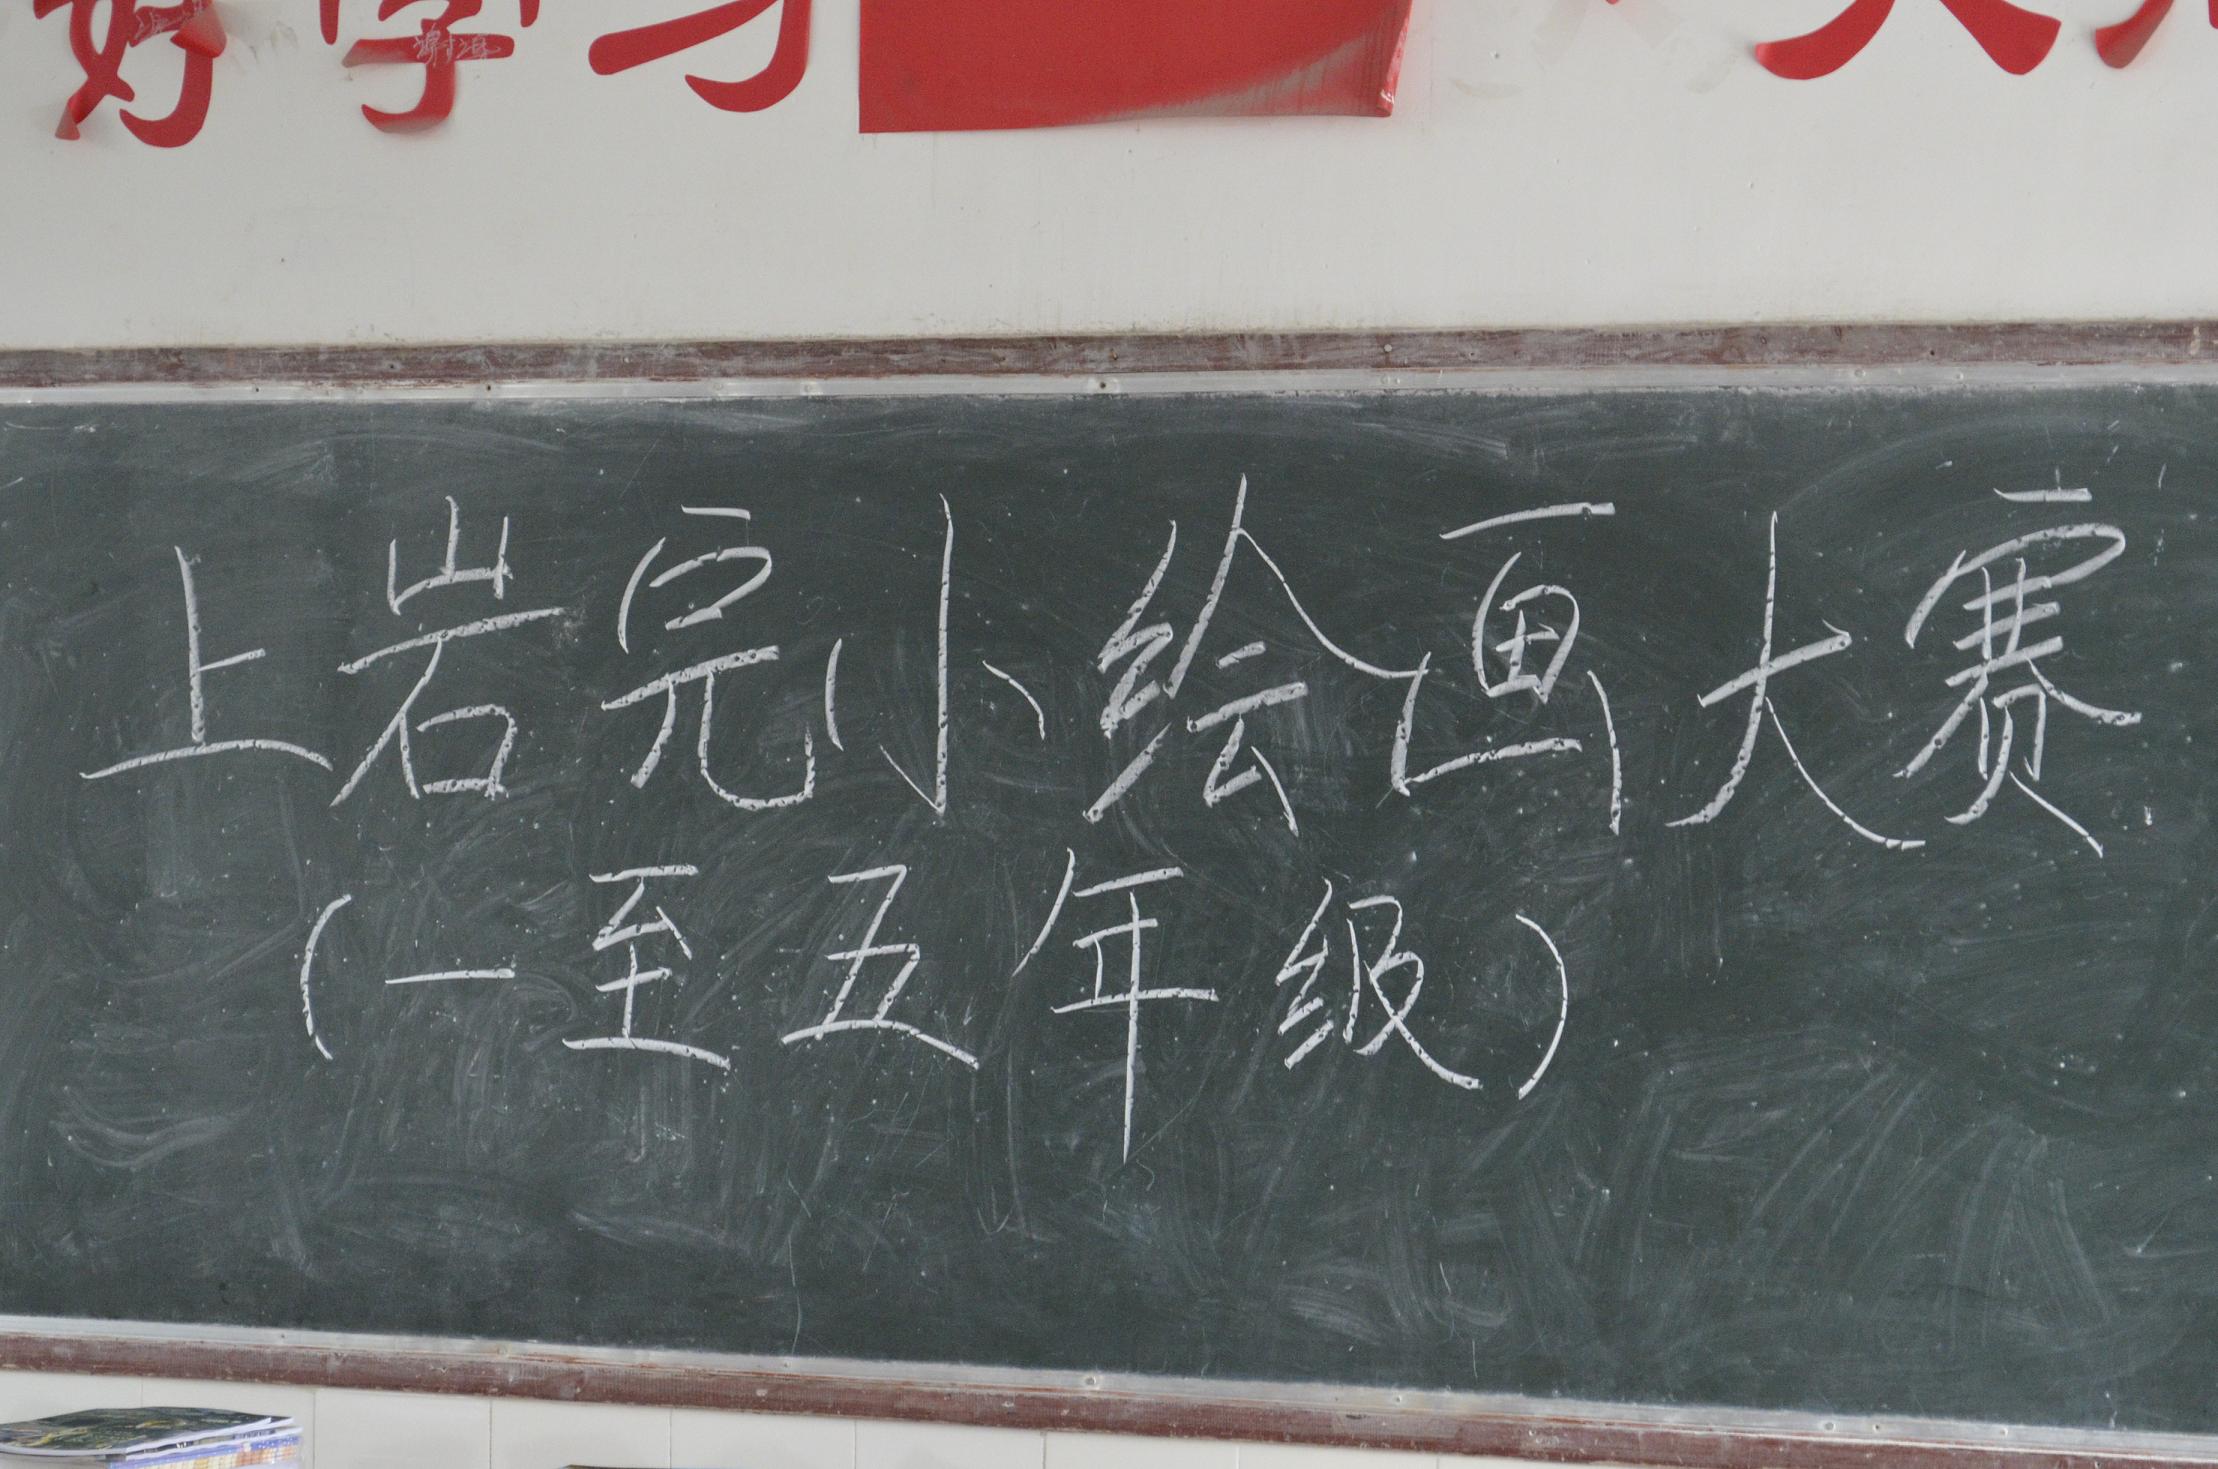 好学习
上岩完小绘画大赛
(一至五年级)